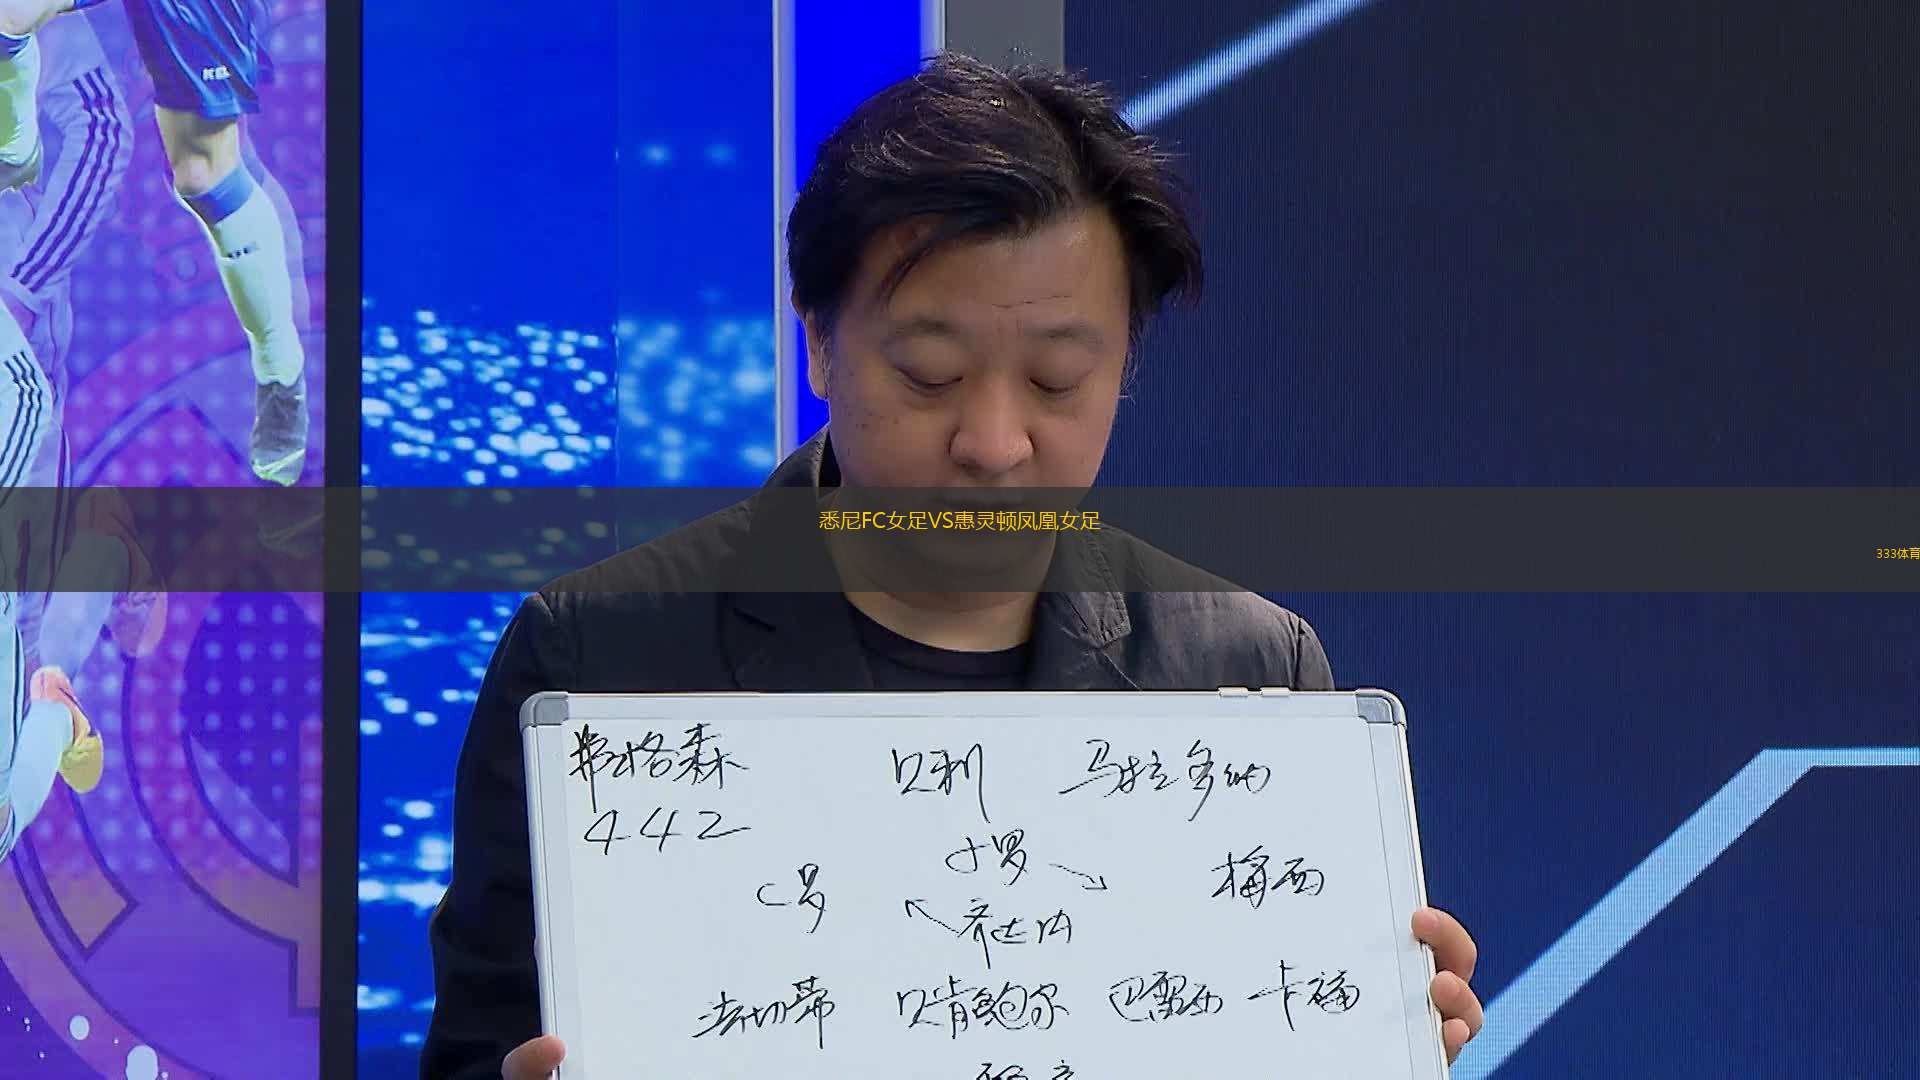 KEL
悉尼FC女足VS惠灵顿凤凰女足
333体育
弗格森 贝利 马拉多纳
442
小罗
C罗 梅西
齐达内
法切蒂 贝肯鲍尔 巴雷西 卡福